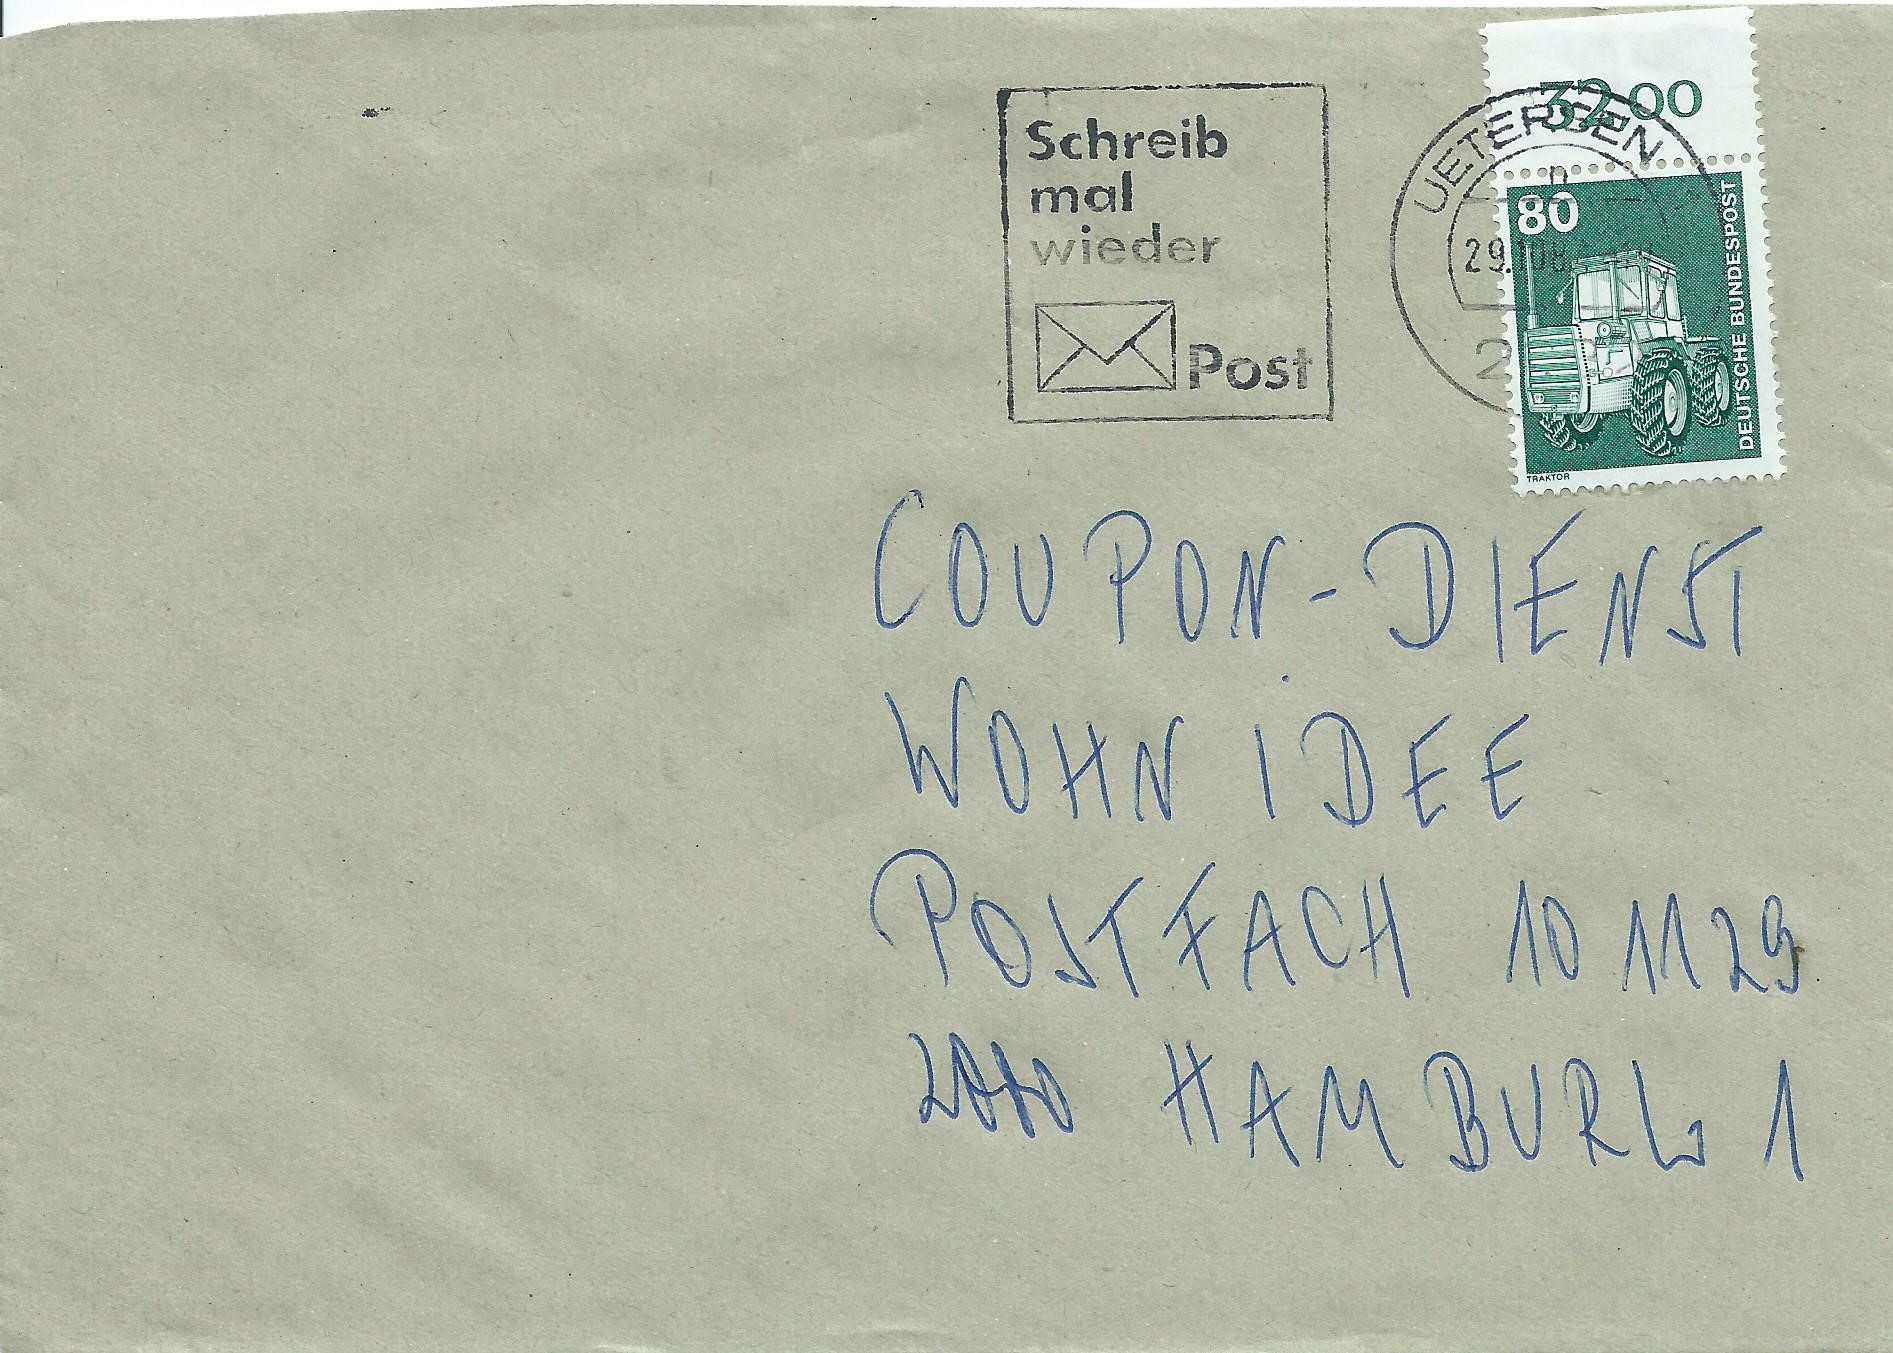 Schreib
mal
wieder
Post
32.00
UETERSEN
80
DEUTSCHE BUNDESPOST
TRAKTOR
COUPON-DIENST
WOHN IDEE
POSTFACH 10 11 29
2000 HAMBURG 1